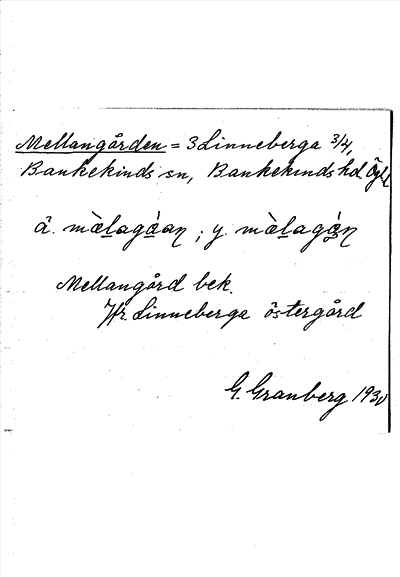 Mellangården = 3 Linneberga 3/4,
Bankekinds sn, Bankekinds hd Ögl
ä. mèlagáan ; y. mèlagán
Mellangård bek.
Jfr Linneberga östergård
G. Granberg 1930